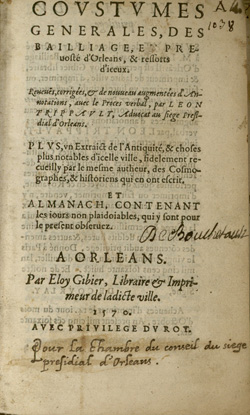 COVSTVMES
GENERALES, DES
BAILLIAGE, ET PRE-
uosté d'Orleans, & ressorts
d'iceux.
Reueuës, corrigées, & de nouueau augmentées d'An-
notations, auec le Proces verbal, par LEON
TRIPPAVLT, Aduocat au siege Presi-
dial d'Orleans.
PLVS, vn Extraict de l'Antiquité, & choses
plus notables d'icelle ville, fidelement re-
cueilly par le mesme autheur, des Cosmo-
graphes, & historiens qui en ont escrit.
ET
ALMANACH, CONTENANT
les iours non plaidoiables, qui y sont pour
le present obseruez.
A ORLEANS.
Par Eloy Gibier, Libraire & Impri-
meur de ladicte ville.
1570.
AVEC PRIVILEGE DV ROY.
Pour la Chambre du conseil du siege
presidial d'Orleans